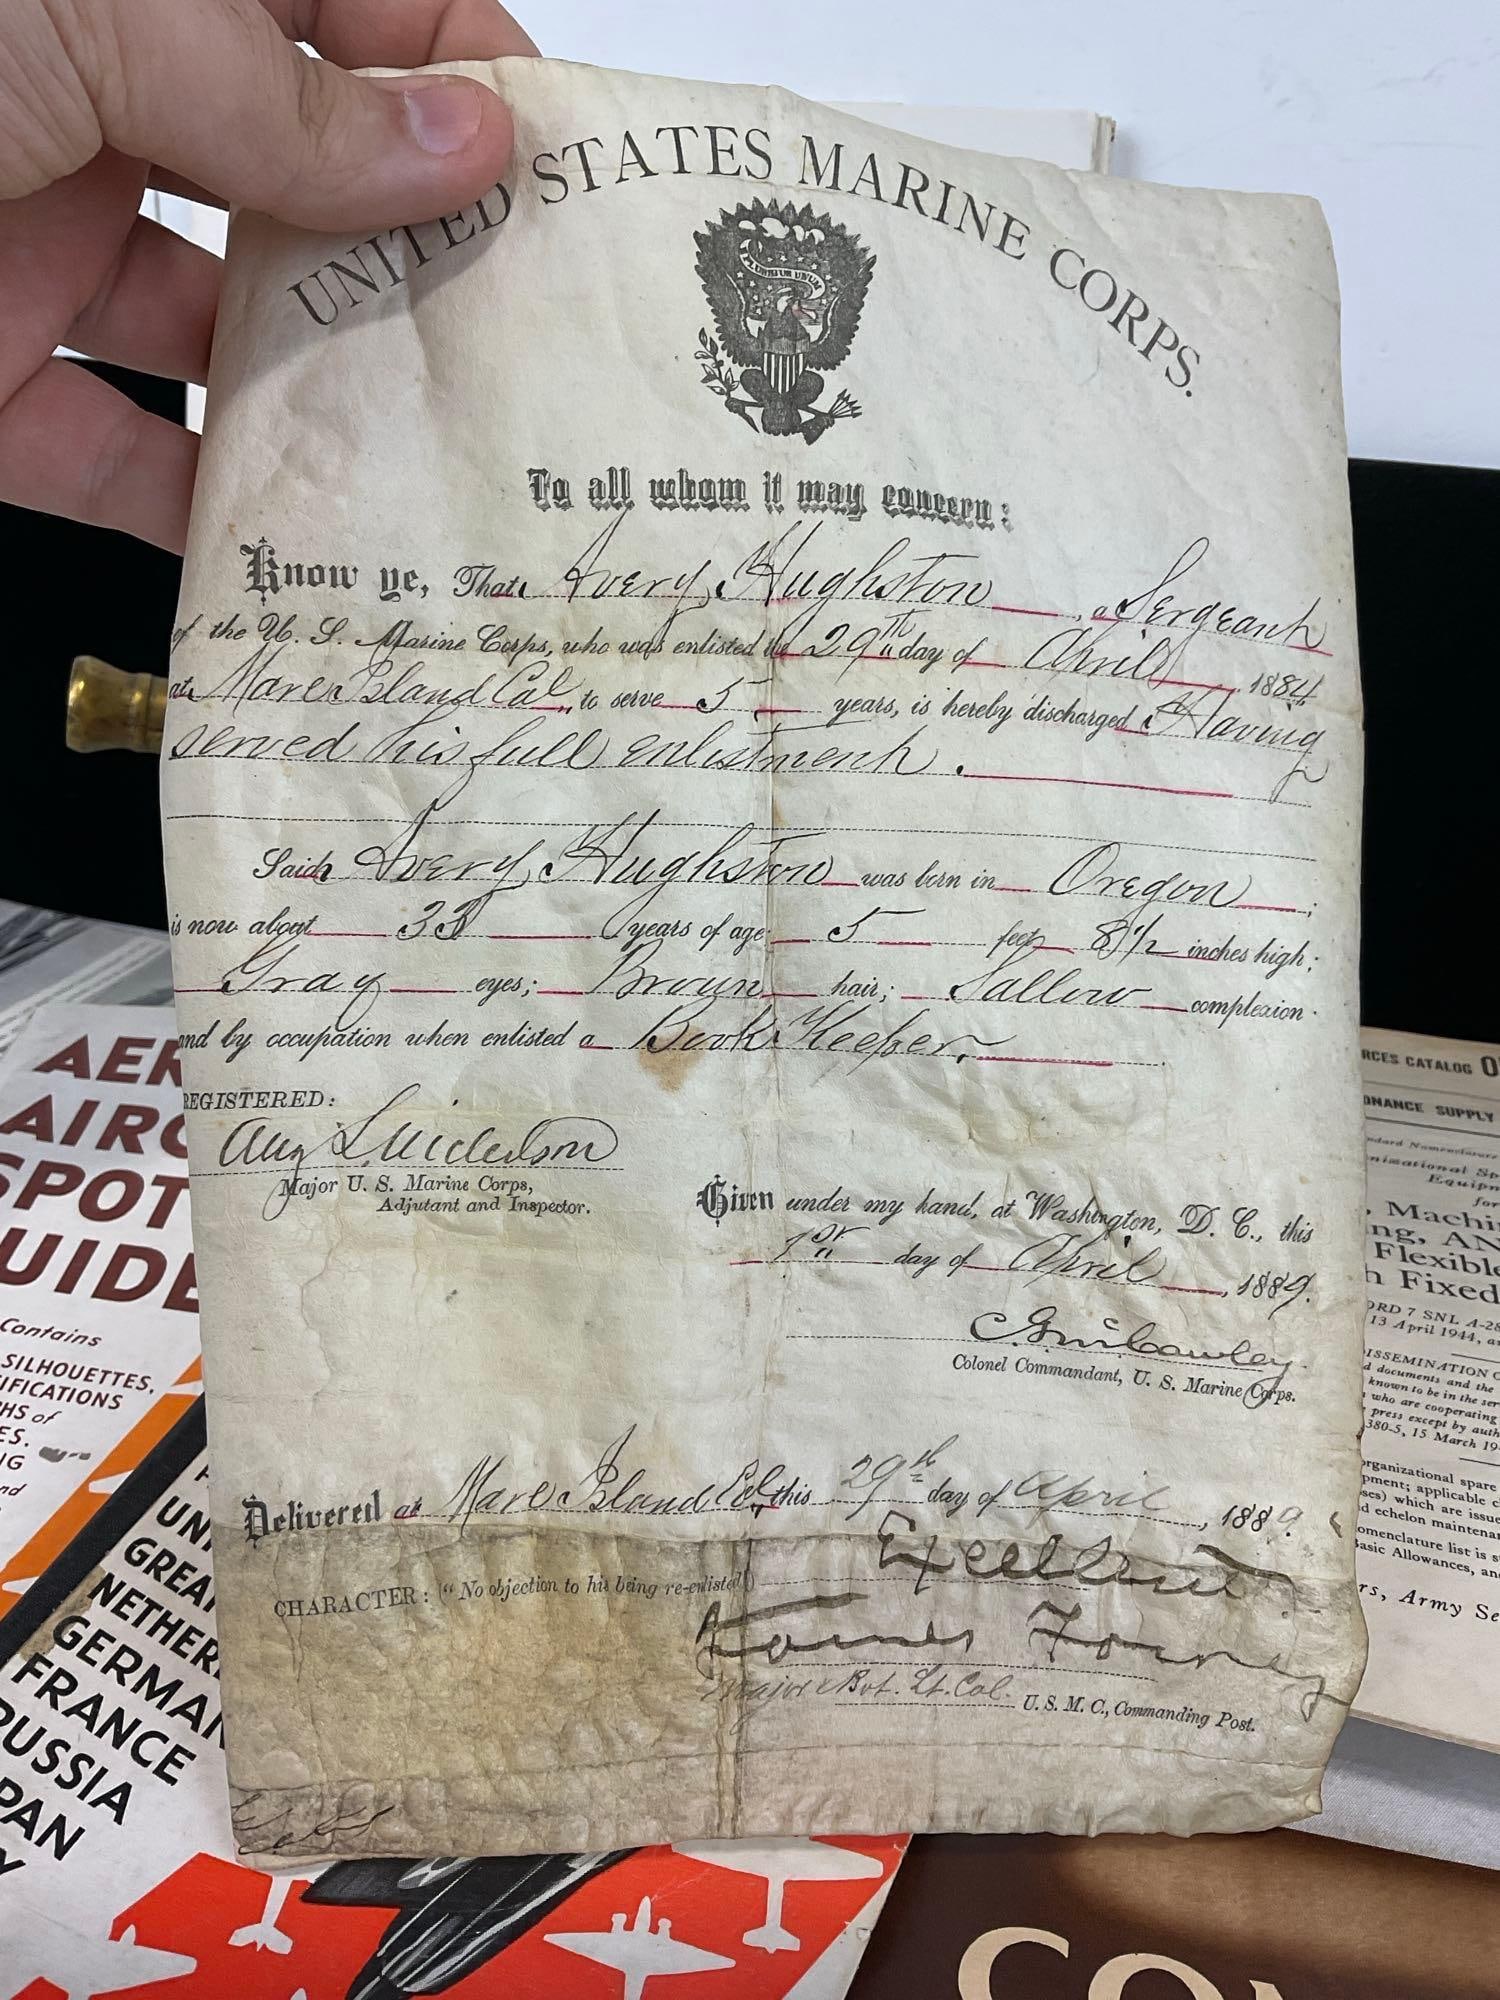 UNITED STATES MARINE CORPS.
E PLURIBUS UNUM
To all whom it may concern:
Know ye, That Avery Hughston, a Sergeant
of the U. S. Marine Corps, who was enlisted the 29th day of April 1884
at Mare Island Cal., to serve 5 years, is hereby discharged Having
served his full enlistment.
Said Avery Hughston was born in Oregon;
is now about 33 years of age 5 feet 8 1/2 inches high;
Gray eyes; Brown hair; Sallow complexion
and by occupation when enlisted a Book Keeper.
REGISTERED:
Aug
Major U. S. Marine Corps,
Adjutant and Inspector.
Given under my hand, at Washington, D. C., this
1st day of April, 1889.
C. G. McCawley
Colonel Commandant, U. S. Marine Corps.
Delivered at Mare Island Cal, this 29th day of April, 1889.
CHARACTER: ("No objection to his being re-enlisted") Excellent
James Forney
Major & Bvt. Lt. Col. U. S. M. C., Commanding Post.
AIRC
SPOT
UIDE
Contains
SILHOUETTES,
IFICATIONS
HS of
ES.
NG
nd
UN
GREA
NETHER
GERMAN
FRANCE
RUSSIA
PAN
RCES CATALOG
NANCE SUPPLY
ndard Nomenclature
Equipm
for
Machi
ng, AN
Flexible
h Fixed
ORD 7 SNL A-28
13 April 1944, a
DISSEMINATION O
d documents and the
known to be in the ser
who are cooperating
press except by auth
380-5, 15 March 19
organizational spare
pment; applicable
ses) which are issue
d echelon maintenan
omenclature list is s
Basic Allowances, an
rs, Army Se